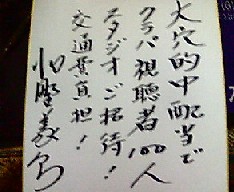 大穴的中配当で
クラパ視聴者100人
スタジオご招待！
交通費負担！